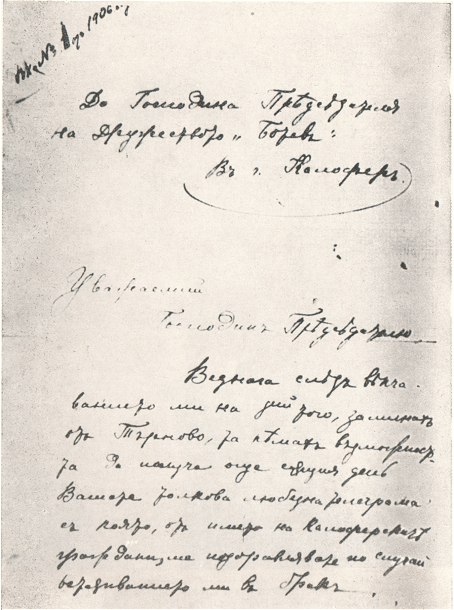 Вх. № 1906 г.
До Господина Прѣдсѣдателя
на Дружеството „Ботевъ“
Въ г. Калоферъ.
Уважаемий
Господинъ Прѣдсѣдателю
Веднага слѣдъ вѣнча-
ванието ми на того, заминахъ
отъ Търново, та нѣмахъ възможность-
та да получа още сѫщия день
Вашата толкова любезна телеграма
съ която, отъ името на Калоферскитѣ
граждани ме поздравлявате по случай
встѫпванието ми въ бракъ.